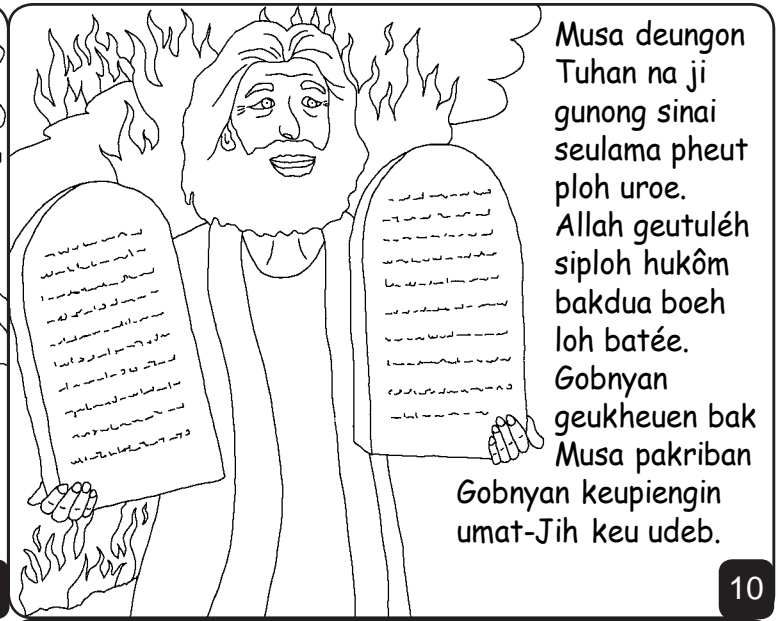 Musa deungon
Tuhan na ji
gunong sinai
seulama pheut
ploh uroe.
Allah geutuléh
siploh hukôm
bakdua boeh
loh batée.
Gobnyan
geukheuen bak
Musa pakriban
Gobnyan keupiengin
umat-Jih keu udeb.
10